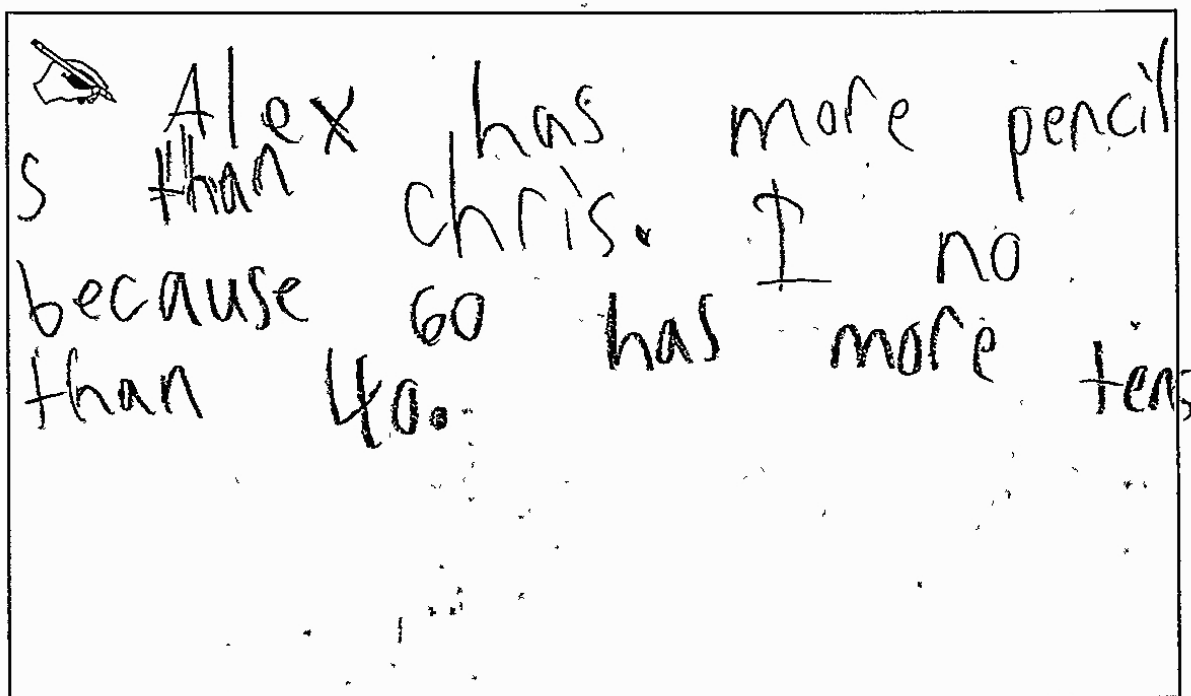 Alex has more pencil
s than chris. I no
because 60 has more tens
than 40.